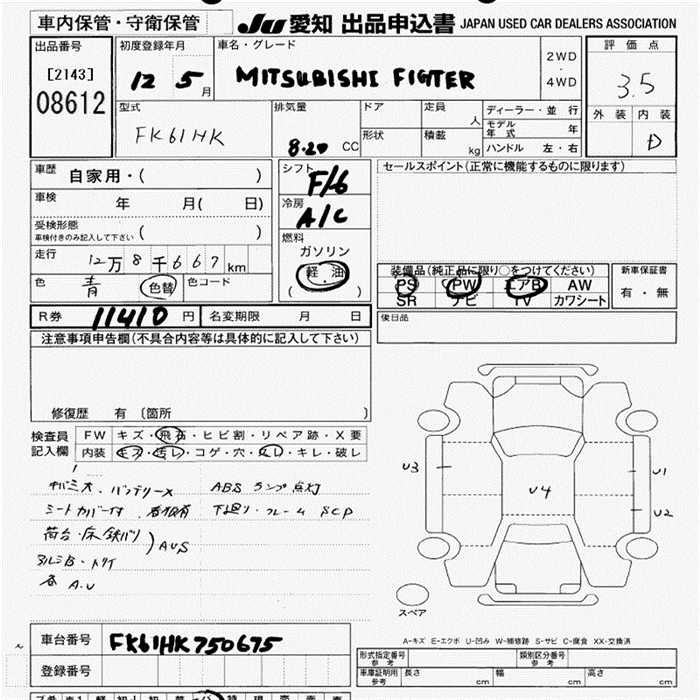 車内保管・守衛保管
JU 愛知 出品申込書 JAPAN USED CAR DEALERS ASSOCIATION
出品番号
[2143]
08612
初度登録年月
12 5 月
車名・グレード
MITSUBISHI FIGTER
2WD
4WD
評価点
3.5
外装 内装
D
型式
FK61HK
排気量
8.20 CC
ドア
形状
定員
人
積載
kg
ディーラー・並行
モデル年式 年
ハンドル 左・右
車歴 自家用・( )
車検 年 月( 日)
受検形態
車検付きのみ記入して下さい ( )
走行 12万8千667km
色 青 色替 色コード
シフト
F/6
冷房
A/C
燃料
ガソリン
軽油
( )
セールスポイント(正常に機能するものに限ります)
装備品(純正品に限り○をつけてください)
PS PW エアB AW
SR ナビ TV カワシート
新車保証書
有・無
R券 11410 円 名変期限 月 日
後日品
注意事項申告欄(不具合内容等は具体的に記入して下さい)
修復歴 有 〔箇所 〕
検査員
記入欄
FW キズ・飛石・ヒビ割・リペア跡・X要
内装 キズ・汚レ・コゲ・穴・スレ・キレ・破レ
バッテリーメ ABS ランプ点灯
シートカバー付 下廻り・フレーム SCP
荷台・床鉄バリ ) AUS
A.U
U3
U4
U1
U2
スペア
A-キズ E-エクボ U-凹み W-補修跡 S-サビ C-腐食 XX-交換済
車台番号 FK61HK750675
登録番号
形式指定番号
参考
類別区分番号
参考
車庫証明用
参考
長さ cm 幅 cm 高さ cm